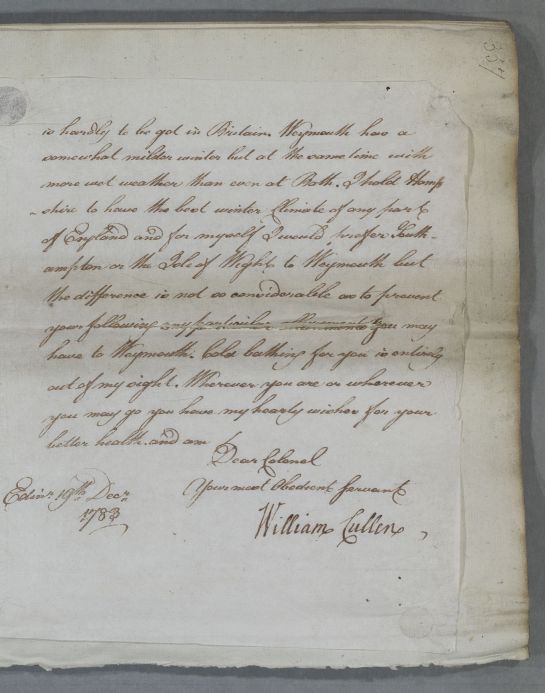 337
is hardly to be got in Britain. Weymouth has a
somewhat milder winter but at the same time with
more wet weather than even at Bath. I hold Hamp
-shire to have the best winter Climate of any part
of England and for myself I would prefer South-
ampton or the Isle of Wight to Weymouth but
the difference is not so considerable as to prevent
your following any particular you may
have to Weymouth. Cold bathing for you is entirely
out of my sight. Wherever you are or wherever
you may go you have my hearty wishes for your
better health and am
Dear Colonel
Your most Obedient Servant
William Cullen
Edinr. 19th. Decr.
1783